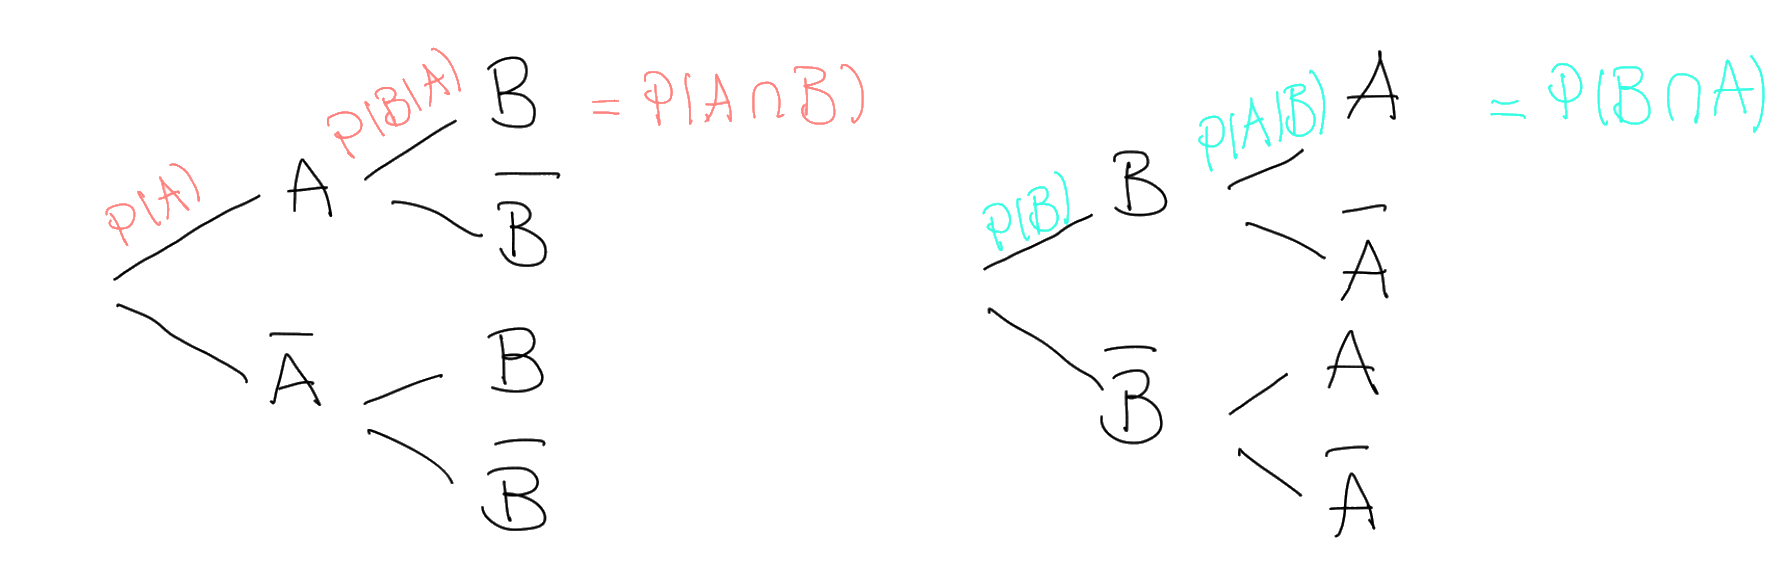 P(A) A P(B|A) B = P(A∩B)
B̅
A̅ B
B̅
P(B) B P(A|B) A = P(B∩A)
A̅
B̅ A
A̅